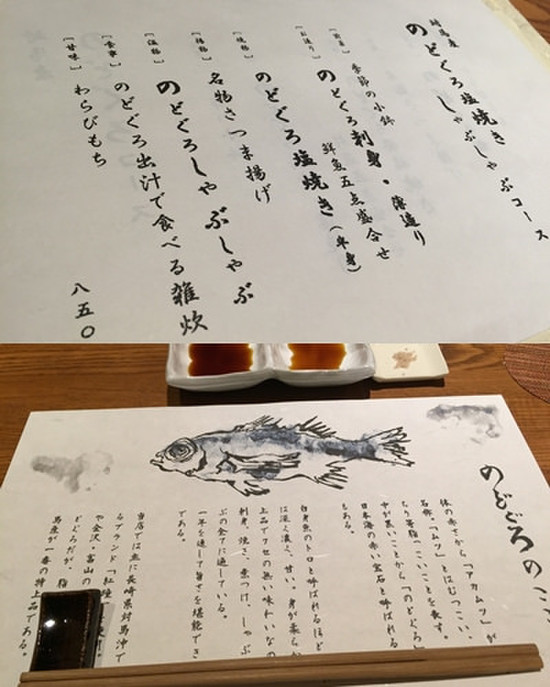 対馬産
のどぐろ塩焼き
しゃぶしゃぶコース
季節の小鉢
【お造り】
のどぐろ刺身・薄造り
鮮魚五点盛合せ
【焼物】
のどぐろ塩焼き(半身)
【揚物】
名物さつま揚げ
【温物】
のどぐろしゃぶしゃぶ
【食事】
のどぐろ出汁で食べる雑炊
【甘味】
わらびもち
八五〇
のどぐろのこ
体の赤さから「アカムツ」が
名称。「ムツ」とはむつこい、
つまり脂
中が黒いことから「のどぐろ」
日本海の赤い宝石と呼ばれる
もある。
白身魚のトロと呼ばれるほど
は深く濃く、甘い。身が柔らか
上品でクセの無い味わいなの
刺身、焼き、煮つけ、しゃぶ
ぶの全てに適している。
一年を通して旨さを堪能でき
である。
当店では主に長崎県対馬沖で
るブランド「紅瞳
や金沢・富山の
どぐろだが、脂
馬産が一番の特上品である。